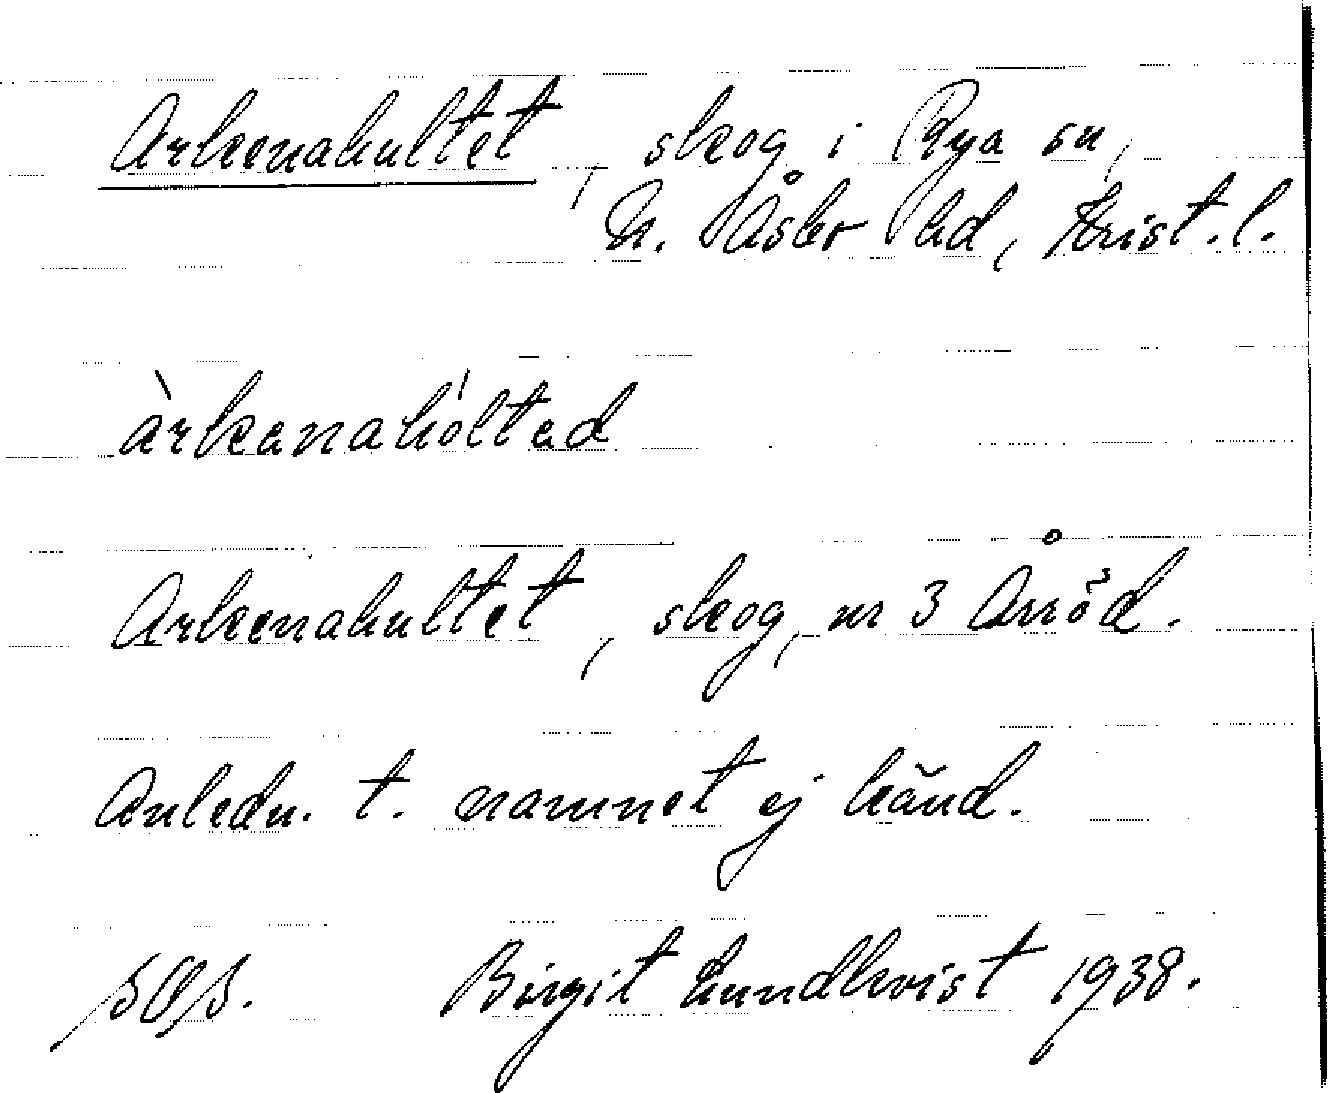 Arkenahultet, skog i Rya sn,
N. Åsbo hd, Krist. l.
àrkanahóltad
Arkenahultet, skog, nr 3 Årröd.
Anledn. t. namnet ej känd.
Birgit Lundkvist 1938.